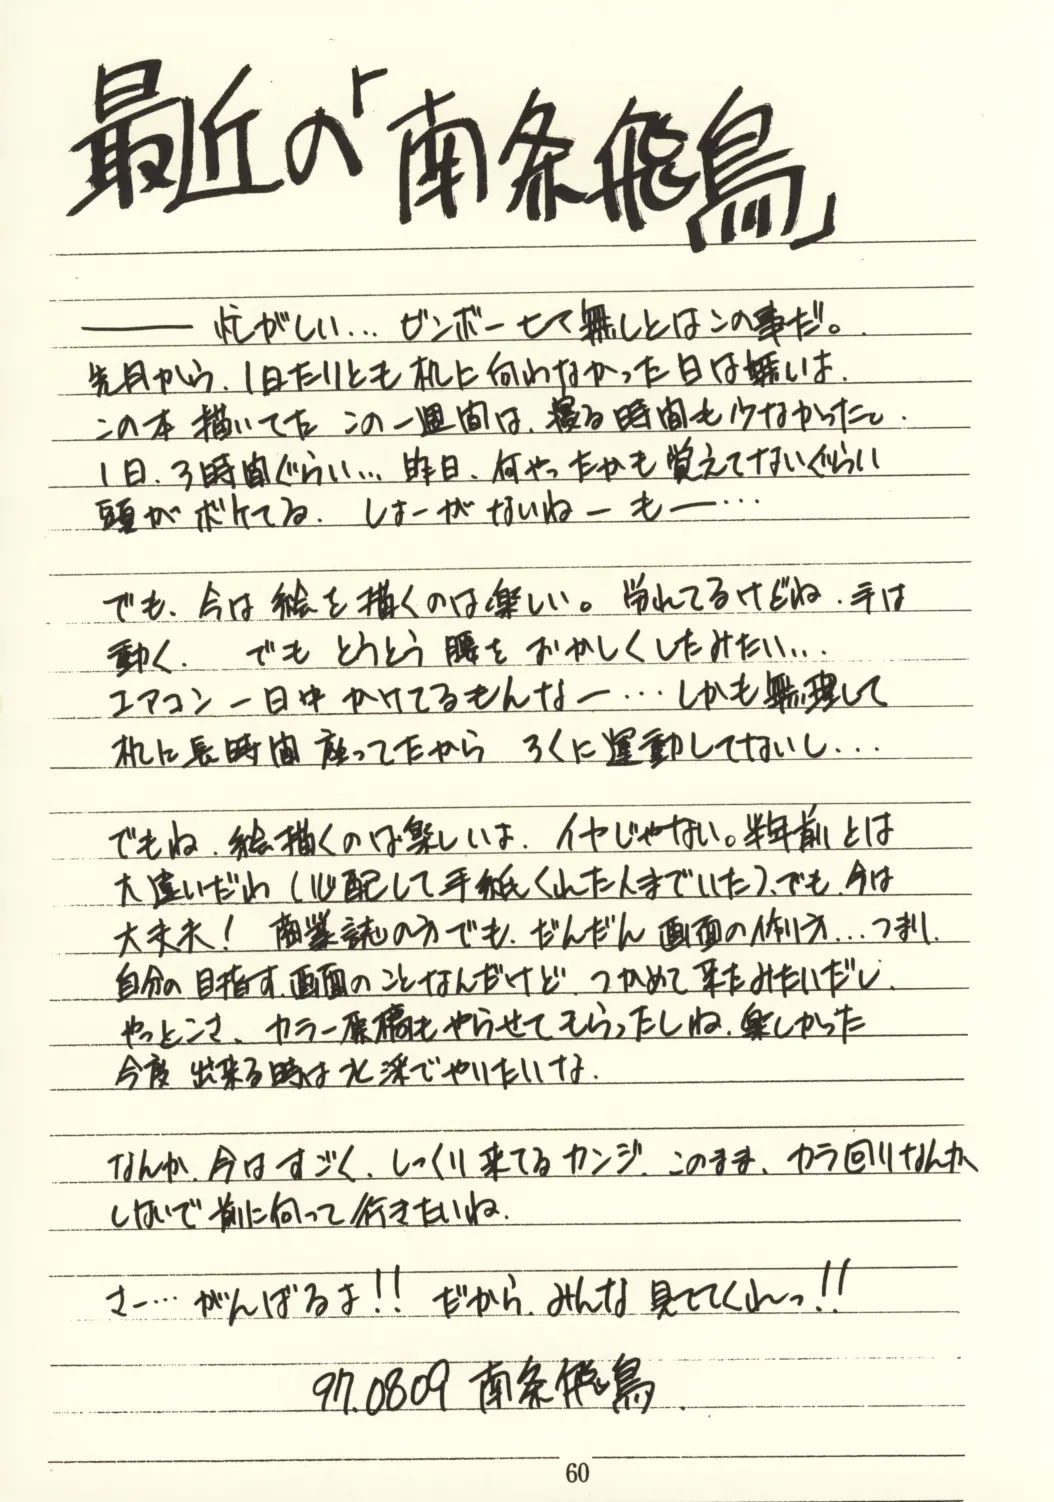 最近の「南条飛鳥」
―― 忙がしい… ビンボー七て無しとはこの事だ。
先月から、1日たりとも机に向わなかった日は無いよ、
この本描いてた この一週間は、寝る時間も少なかったし、
1日、3時間ぐらい… 昨日、何やったかも覚えてないぐらい
頭がボケてる、しょーがないねー もー…
でも、今は絵を描くのは楽しい。労れてるけどね、手は
動く、 でも とうとう腰を おかしくしたみたい…
エアコン一日中かけてるもんなー… しかも無理して
机に長時間座ってたから ろくに運動してないし…
でもね、絵描くのは楽しいよ、イヤじゃない。半年前とは
大違いだわ(心配して手紙くれた人までいた)、でも、今は
大丈夫! 商業誌の方でも、だんだん画面の作り方…つまり、
自分の目指す、画面のことなんだけど、つかめて来たみたいだし、
やっとこさ、カラー原稿もやらせてもらったしね、楽しかった
今度 出来る時は水彩でやりたいな、
なんか、今はすごく、しっくり来てるカンジ、このまま、カラ回りなんか
しないで前に向って行きたいね、
さー… がんばるよ!! だから、みんな見ててくれーっ!!
97.0809 南条飛鳥.
60